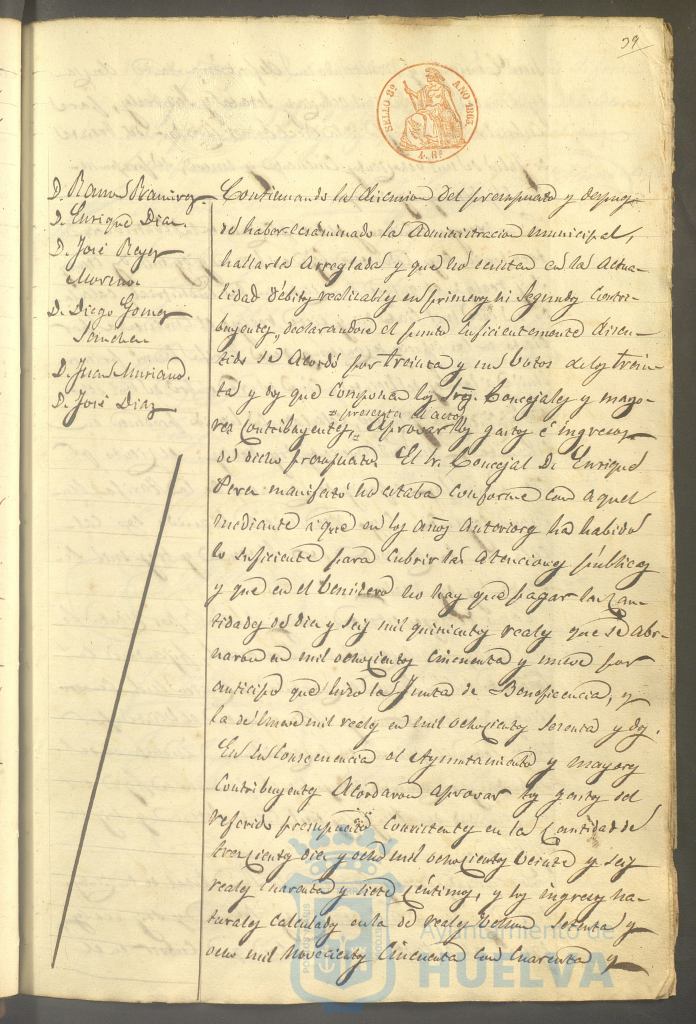 39
SELLO 8º AÑO 1863.
4. Rs
D. Ramos Ramirez
D. Enrique Diaz.
D. José Reyes
Moreno.
D. Diego Gomez
Sanchez
D. Juan Muriano.
D. José Diaz
Continuando la discusion del presupuesto y despues
de haber examinado la Administracion municipal,
hallarla arreglada y que no ecsistan en la actua-
lidad débitos realizables en primeros ni segundos contri-
buyentes, declarandose el punto suficientemente discu-
tido se acordó por treinta y un votos de los trein-
ta y dos que componen los Sres. Concejales y mayo-
res contribuyentes, =presentes al acto= aprovar los gastos é ingresos
de dicho presupuesto. El Sr. Concejal D. Enrique
Perez manifestó no estaba conforme con aquel
mediante a que en los años anteriores ha habido
lo suficiente para cubrir las atenciones públicas
y que en el venidero no hay que pagar las can-
tidades de diez y seis mil quinientos reales que se abo-
naron en mil ochocientos cincuenta y nueve por
anticipo que hizo la Junta de Beneficencia, y
la de nueve mil reales en mil ochocientos sesenta y dos.
En su consecuencia el Ayuntamiento y mayores
contribuyentes acordaron aprovar los gastos del
referido presupuesto consistentes en la cantidad de
trescientos diez y ocho mil ochocientos veinte y seis
reales cuarenta y siete céntimos, y los ingresos na-
turales calculados en la de reales vellon setenta y
ocho mil novecientos cincuenta con cuarenta y
Ayuntamiento de
HUELVA